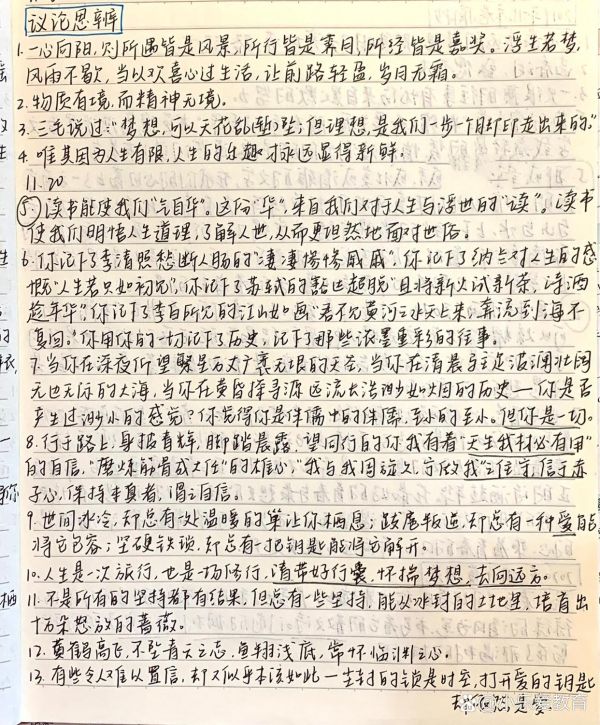 议论思辨
1.一心向阳,则所遇皆是风景,所行皆是寨月,所经皆是嘉奖。浮生若梦,
风雨不歇,当以欢喜心过生活,让前路轻盈,岁月无霜。
2.物质有境,而精神无境。
3.三毛说过:"梦想,可以天花乱(坠)坠;但理想,是我们一步一个脚印走出来的。"
4.唯其因为人生有限,人生的乐趣才永远显得新鲜。
11.20
5.读书能使我们"气自华"。这份"华",来自我们对于人生与浮世的"读"。读书
使我们明悟人生道理,了解人世,从而更坦然地面对世俗。
6.你记下了李清照愁断人肠的"凄凄惨惨戚戚",你记下了纳兰对人生的感
慨"人生若只如初见",你记下了苏轼的豁达超脱"且将新火试新茶,诗酒
趁年华",你记下了李白所见的江山如画"君不见黄河之水天上来,奔流到海不
复回。"你用你的一切记下了历史,记下了那些浓墨重彩的往事。
7.当你在深夜仰望繁星万丈广袤无垠的天空,当你在清晨乎之波澜壮阔
无边无际的大海,当你在黄昏探寻源远流长浩渺如烟的历史——你是否
产生过渺小的感觉?你觉得你是侏儒中的侏儒,至小的至小。但你是一切。
8.行于路上,身披春辉,脚踏晨露,望同行的你我有着"天生我材必有用"
的自信,"磨炼筋骨成大任"的雄心,"我与我周旋久,宁做我"之住守,信于赤
子心,保持本真者,谓之自信。
9.世间冰冷,却总有一处温暖的巢让你栖息;跋扈叛逆,却总有一种爱能
将它包容;坚硬铁锁,却总有一把钥匙能将它解开。
10.人生是一次旅行,也是一场修行,请带好行囊,怀揣梦想,去向远方。
11.不是所有的坚持都有结果,但总有一些坚持,能从冰封的土地里,培育出
十万朵怒放的蔷薇。
12.黄鹤高飞,不坠青云之志,鱼翔浅底,常怀临渊之心。
13.有些令人难以置信,却又似乎本该如此——尘封的锁是时空,打开爱的钥匙
却依然是爱